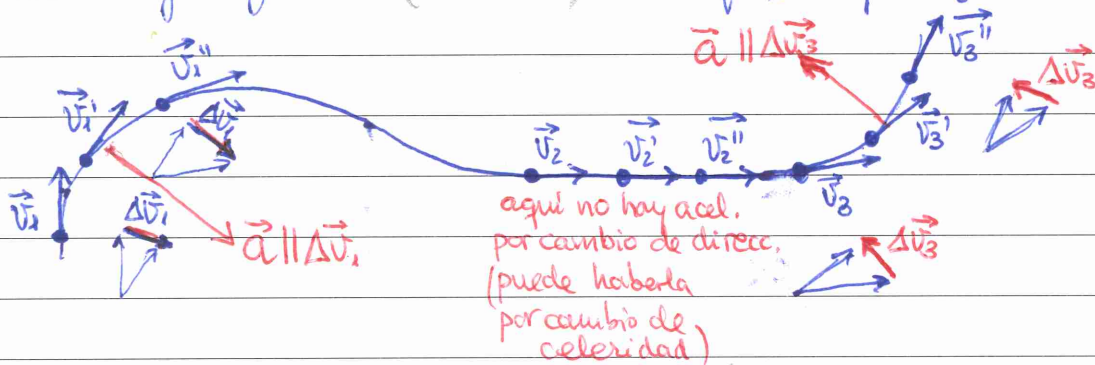 v₁
v₁'
v₁''
Δv₁
Δv₁
a || Δv₁
v₂
v₂'
v₂''
aquí no hay acel.
por cambio de direcc.
(puede haberla
por cambio de
celeridad)
a || Δv₃
v₃
v₃'
v₃''
Δv₃
Δv₃